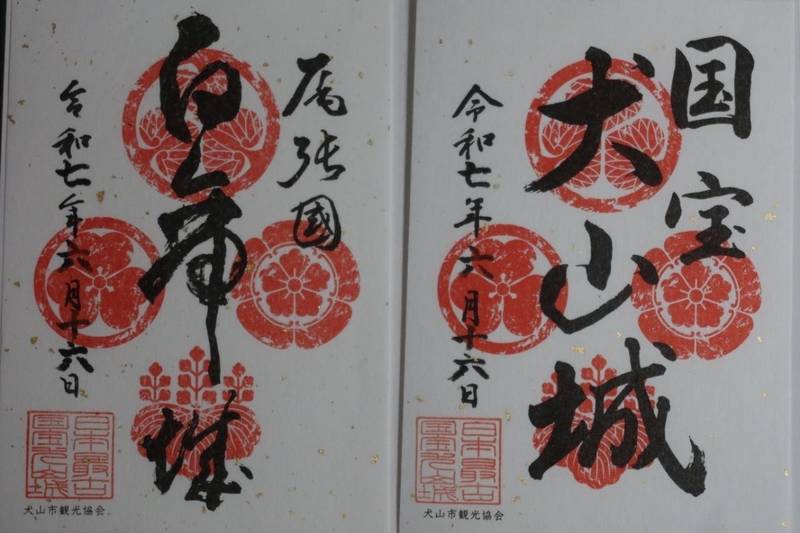 尾張國
白帝城
令和七年六月十六日
日本最古
犬山市観光協会
国宝
犬山城
令和七年六月十六日
日本最古
犬山市観光協会